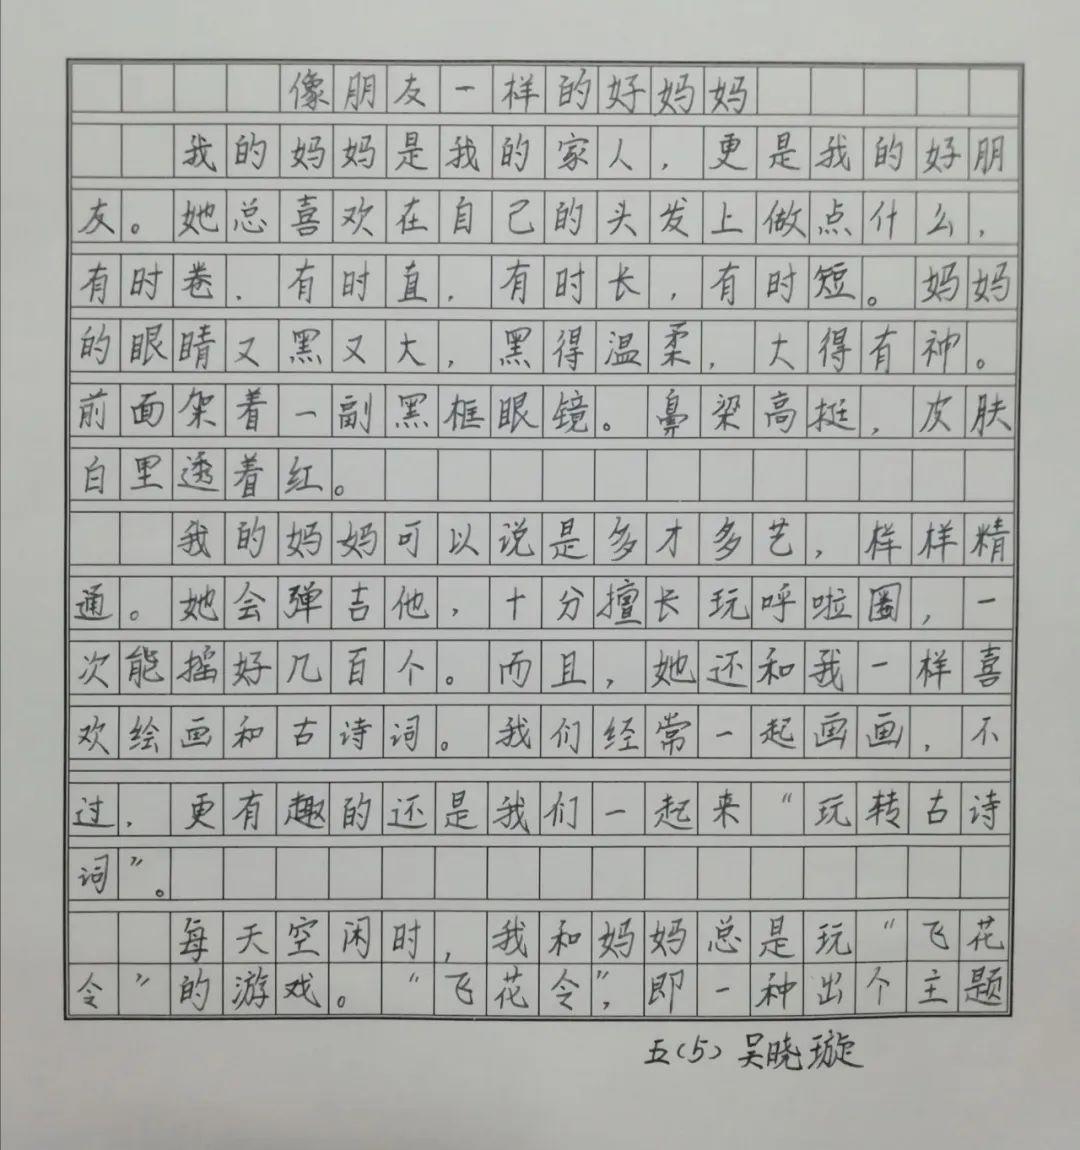 像朋友一样的好妈妈
我的妈妈是我的家人，更是我的好朋
友。她总喜欢在自己的头发上做点什么，
有时卷，有时直，有时长，有时短。妈妈
的眼睛又黑又大，黑得温柔，大得有神。
前面架着一副黑框眼镜。鼻梁高挺，皮肤
白里透着红。
我的妈妈可以说是多才多艺，样样精
通。她会弹吉他，十分擅长玩呼啦圈，一
次能摇好几百个。而且，她还和我一样喜
欢绘画和古诗词。我们经常一起画画，不
过，更有趣的还是我们一起来“玩转古诗
词”。
每天空闲时，我和妈妈总是玩“飞花
令”的游戏。“飞花令”，即一种出个主题
五(5)吴晓璇